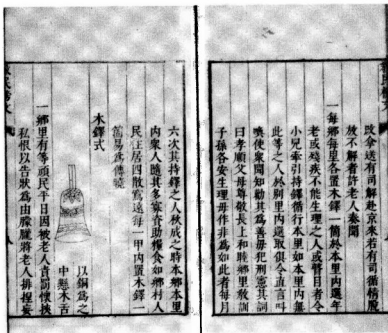 改拿送有司解赴京來若有司循情脫
放不解者許老人奏聞
一每鄉每里各置木鐸一箇於本里内選年
老或殘疾不能生理之人或瞽目者令
小兒牽引持鐸循行本里如本里内無
此等之人於别里内選取俱令直言叫
喚使衆聞知勸其為善毋犯刑憲其詞
曰孝順父母尊敬長上和睦鄉里教訓
子孫各安生理毋作非為如此者每月
六次其持鐸之人秋成之時本鄉本里
内衆人隨其多寡資助糧食如鄉村人
民住居四散窵遠每一甲内置木鐸一
箇易為傳曉
木鐸式
以銅為之
中懸木舌
一鄉里有等頑民平日因被老人責罰懷挾
私恨以告狀為由朦朧將老人排捏妄
民榜文